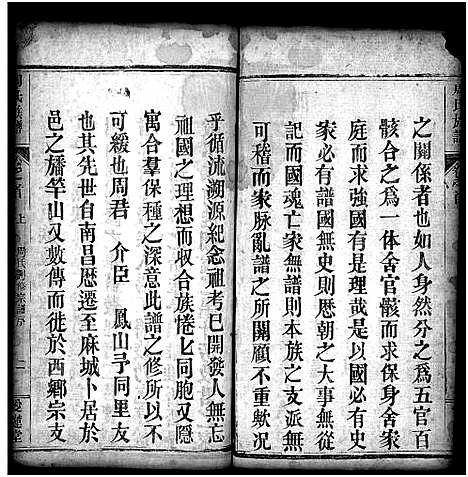 之關係者也如人身然分之爲五官百
骸合之爲一体舍官骸而求保身舍家
庭而求強國有是理哉是以國必有史
家必有譜國無史則歷朝之大事無從
記而國魂亡家無譜則本族之支派無
可稽而家脉亂譜之所關顧不重歟況
乎循流溯源紀念祖考已開發人無忘
祖國之理想而收合族惓匕同胞又隱
寓合羣保種之深意此譜之修所以不
可緩也周君 介臣 鳳山予同里友
也其先世自南昌歷遷至麻城卜居於
邑之旛竿山又數傳而徙於西鄉宗支
卷首 上 二